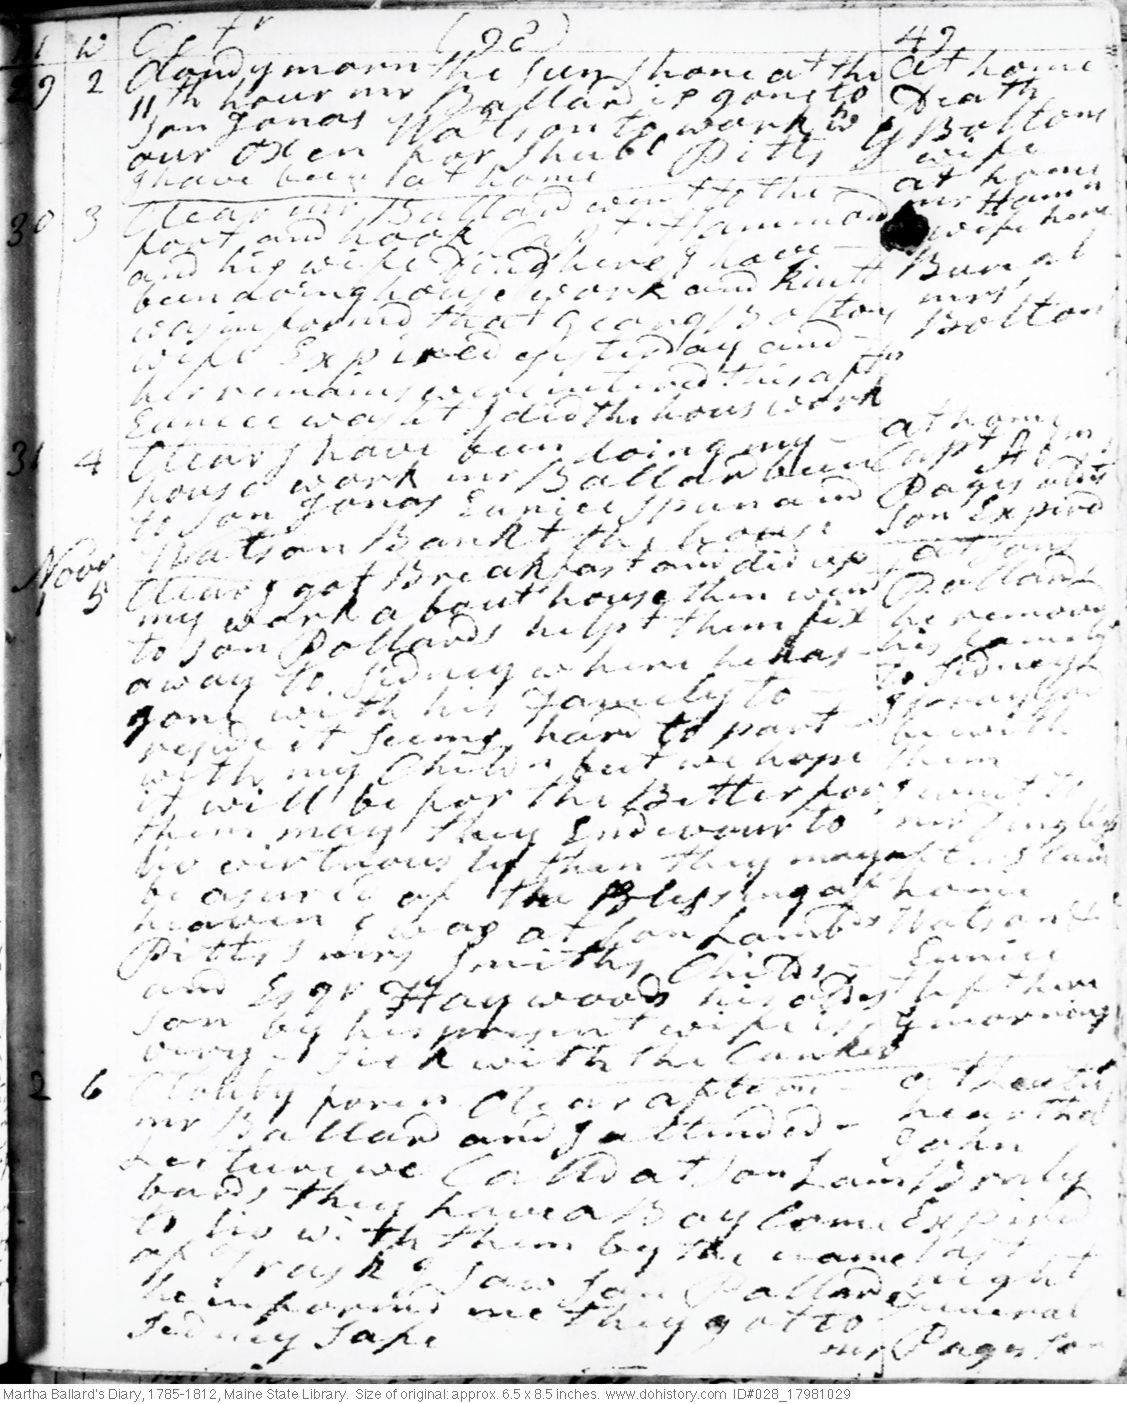 11 W Octr (98) 49
29 2 Cloudy morn the sun shone at the
11th hour mr Ballard is gone to
son Jonas Watson to work with
our oxen for Shubl Pitts
I have been at home
at home
Death
Boltons
wife
30 3 Clear mr Ballard went to the
fort and hook Capt Hammond
and his wife dind here I have
been doing house work and knitt
was informd that Georg Bolton
wife Expired yesterday and
her remains were intered this aftn
Eunice washt I did the hous work
at home
mr Hamn
wife here
Burial
mrs
Bolton
31 4 Clear I have been doing my
house work mr Ballard been
to son Jonas Eunice spun and
Watson Bankt the house
at home
Capt
Pages oldest
son Expired
Novr
1 5 Clear I got Breakfast and did up
my work about house then went
to son Pollards helpt them fix
away to Sidney where he has
gone with his Family to
reside it seems hard to part
with my Child n but we hope
it will be for the Better for
them may they Endevour to
liv virtuously then they may
be asured of the Blessing of
heaven I was at son Lambds
Pittss mrs Smiths Childs
and Esqr Haywood his oldest
son by his present wife is
very sick with the Canker
at sons
Pollards
he removd
his Family
to Sidney
I pray God
be with
them
I went to
home
Watson &
Eunice
left here
morning
2 6 Clouby foren Clear aftern
mr Ballard and I attended
Lecture we Calld at son Lam
bards they have a Boy Come
to liv with them by the name
of Trask I saw son Pollard
he informd me they got to
Sidney safe
at Lectur
hear that
John
Braly
Expired
last
night
Funeral
mr Pages son
Martha Ballard's Diary, 1785-1812, Maine State Library. Size of original: approx. 6.5 x 8.5 inches. www.dohistory.com ID#028_17981029